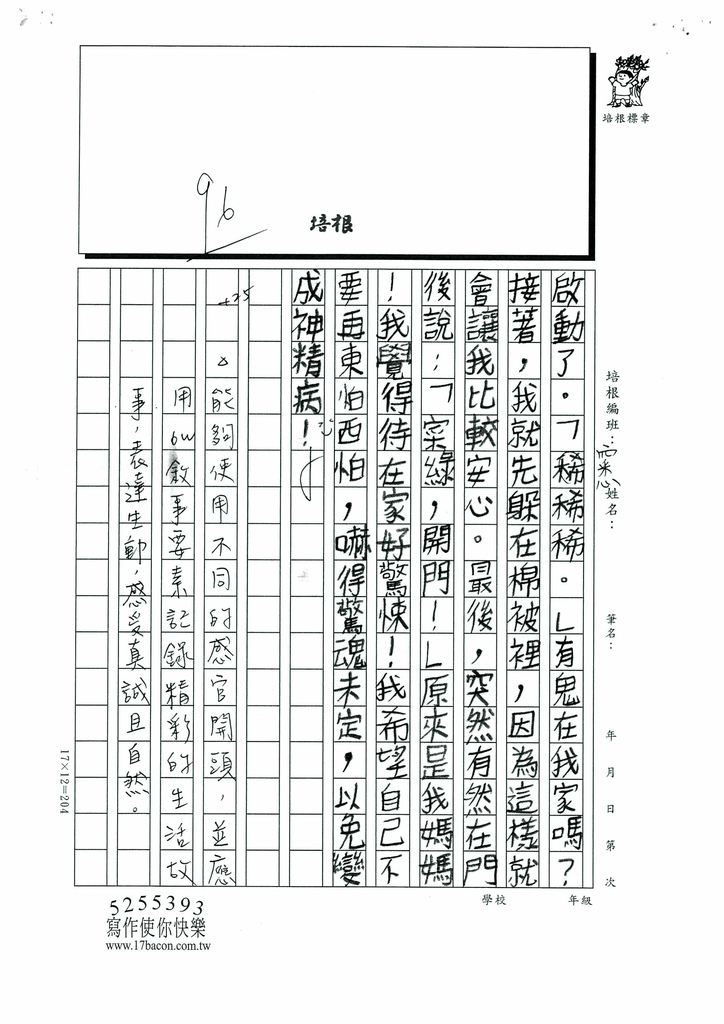 培根標章
培根
96
培根編班：
姓名：
筆名：
年 月 日 第 次
學校
年級
啟動了。「稀稀稀。」有鬼在我家嗎？
接著，我就先躲在棉被裡，因為這樣就
會讓我比較安心。最後，突然有然在門
後說：「寀緣，開門！」原來是我媽媽
！我覺得待在家好驚悚！我希望自己不
要再東怕西怕，嚇得驚魂未定，以免變
成神精病！
+25
能夠使用不同的感官開頭，並應
用6W敘事要素記錄精彩的生活故
事，表達生動，感受真誠且自然。
17×12=204
5255393
寫作使你快樂
www.17bacon.com.tw